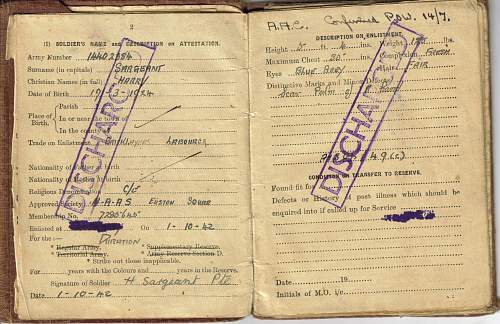 2
(I) SOLDIER'S NAME AND DESCRIPTION ON ATTESTATION.
Army Number
Surname (in capitals) SARGEANT
Christian Names (in full) HARRY
Date of Birth 19-3-1924
Place of Birth.
Parish
In or near the town of
In the county
Trade on Enlistment LABOURER
Nationality of Father at birth
Nationality of Mother at birth
Religious Denomination C/E
Approved Society EUSTON SQUARE
Membership No.
Enlisted at On 1-10-42
For the :- DURATION
* Regular Army. * Supplementary Reserve.
* Territorial Army. * Army Reserve Section D.
* Strike out those inapplicable.
For years with the Colours and years in the Reserve.
Signature of Soldier H Sargeant Pte
Date 1-10-42
DISCHARGED
A.A.C. Confirmed P.O.W. 14/7.
DESCRIPTION ON ENLISTMENT.
Height 5 ft. ins. Weight lbs.
Maximum Chest ins. Complexion FRESH
Eyes BLUE GREY Hair FAIR
Distinctive Marks and Minor Defects
Scar Palm of R Hand
CONDITION ON TRANSFER TO RESERVE.
Found fit for
Defects or History of past illness which should be
enquired into if called up for Service
Date 19
Initials of M.O. i/c
DISCHARGED